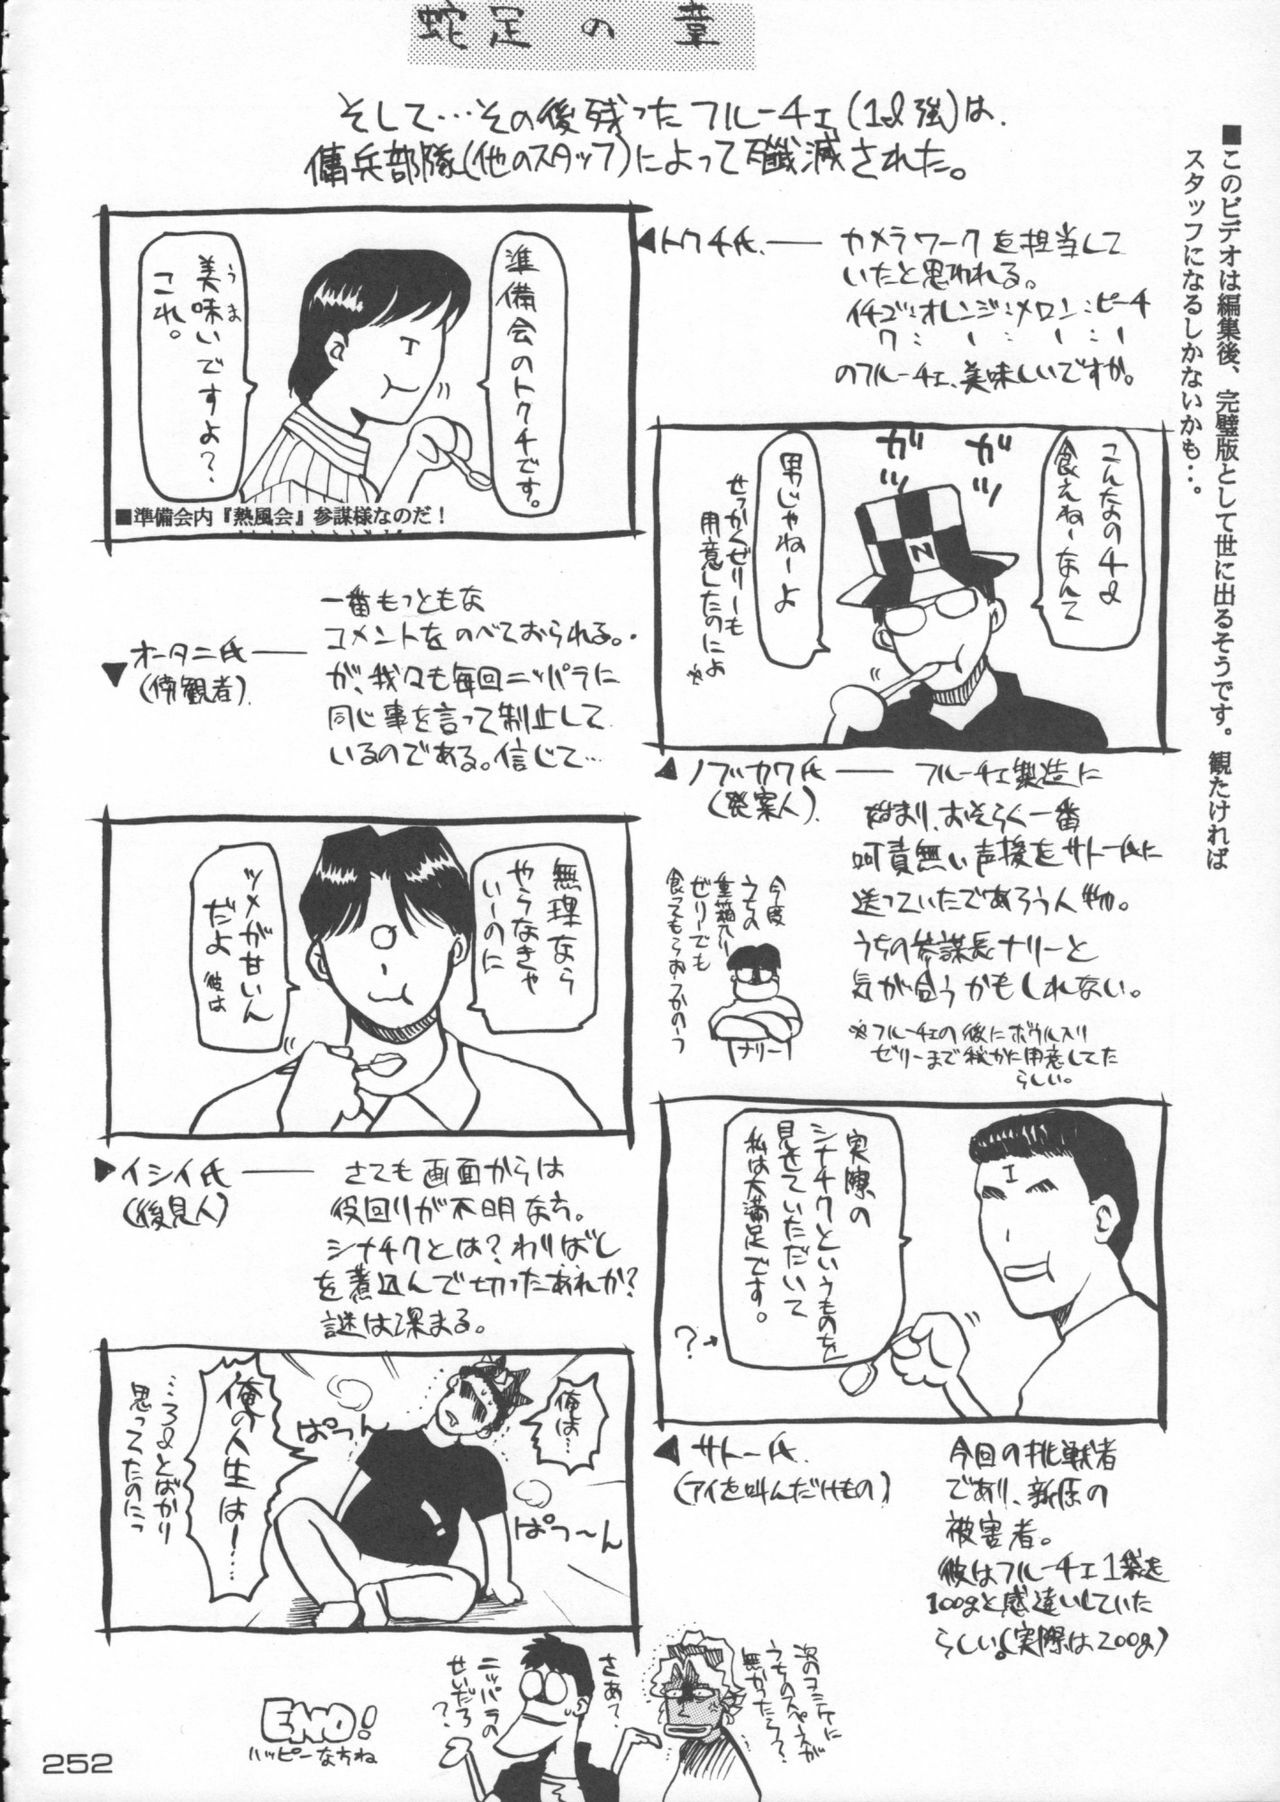 蛇足の章
そして…その後残ったフルーチェ(1ℓ強)は、
傭兵部隊(他のスタッフ)によって殲滅された。
■このビデオは編集後、完璧版として世に出るそうです。観たければ
スタッフになるしかないかも‥。
準備会のトクチです。
美味いですよ?
うま
これ。
■準備会内『熱風会』参謀様なのだ!
◀トクチ氏──
カメラワークを担当して
いたと思われる。
イチゴ:オレンジ:メロン:ピーチ
のフルーチェ、美味しいですか。
こんなの4ℓ
食えねーなんて
ガツ
ガツ
男じゃねーよ
せっかくゼリーも
用意したのによ
※
N
▼オータニ氏──
(傍観者)
一番もっともな
コメントをのべておられる。
が、我々も毎回ニッパラに
同じ事を言って制止して
いるのである。信じて…
▲ノブカワ氏──
(発案人)
フルーチェ製造に
始まり、おそらく一番
呵責無い声援をサトー氏に
送っていたであろう人物。
うちの参謀長ナリーと
気が合うかもしれない。
※フルーチェの後にボウル入り
ゼリーまで秘かに用意してた
らしい。
今度
うちの
重箱入り
ゼリーでも
食ってもらおーかのーっ
ナリー
無理なら
やらなきゃ
いーのに
ツメが甘いん
だよ
彼は
▶イシイ氏──
(後見人)
さても画面からは
役回りが不明な方。
シナチクとは?わりばし
を煮込んで切ったあれか?
謎は深まる。
実際の
シナチクというものを
見せていただいて
私は大満足です。
?→
◀サトー氏
(アイを叫んだけもの)
今回の挑戦者
であり、新原の
被害者。
彼はフルーチェ1袋を
100gと感違いしていた
らしい。(実際は200g)
俺は…
ぱつん
ぱつ〜ん
俺の人生は…
…3ℓとばかり
思ってたのにっ
さあ?
ニッパラの
せいだろ
?
次のコミケに
うちのスペースが
無かったら?
END!
ハッピーな方ね
252